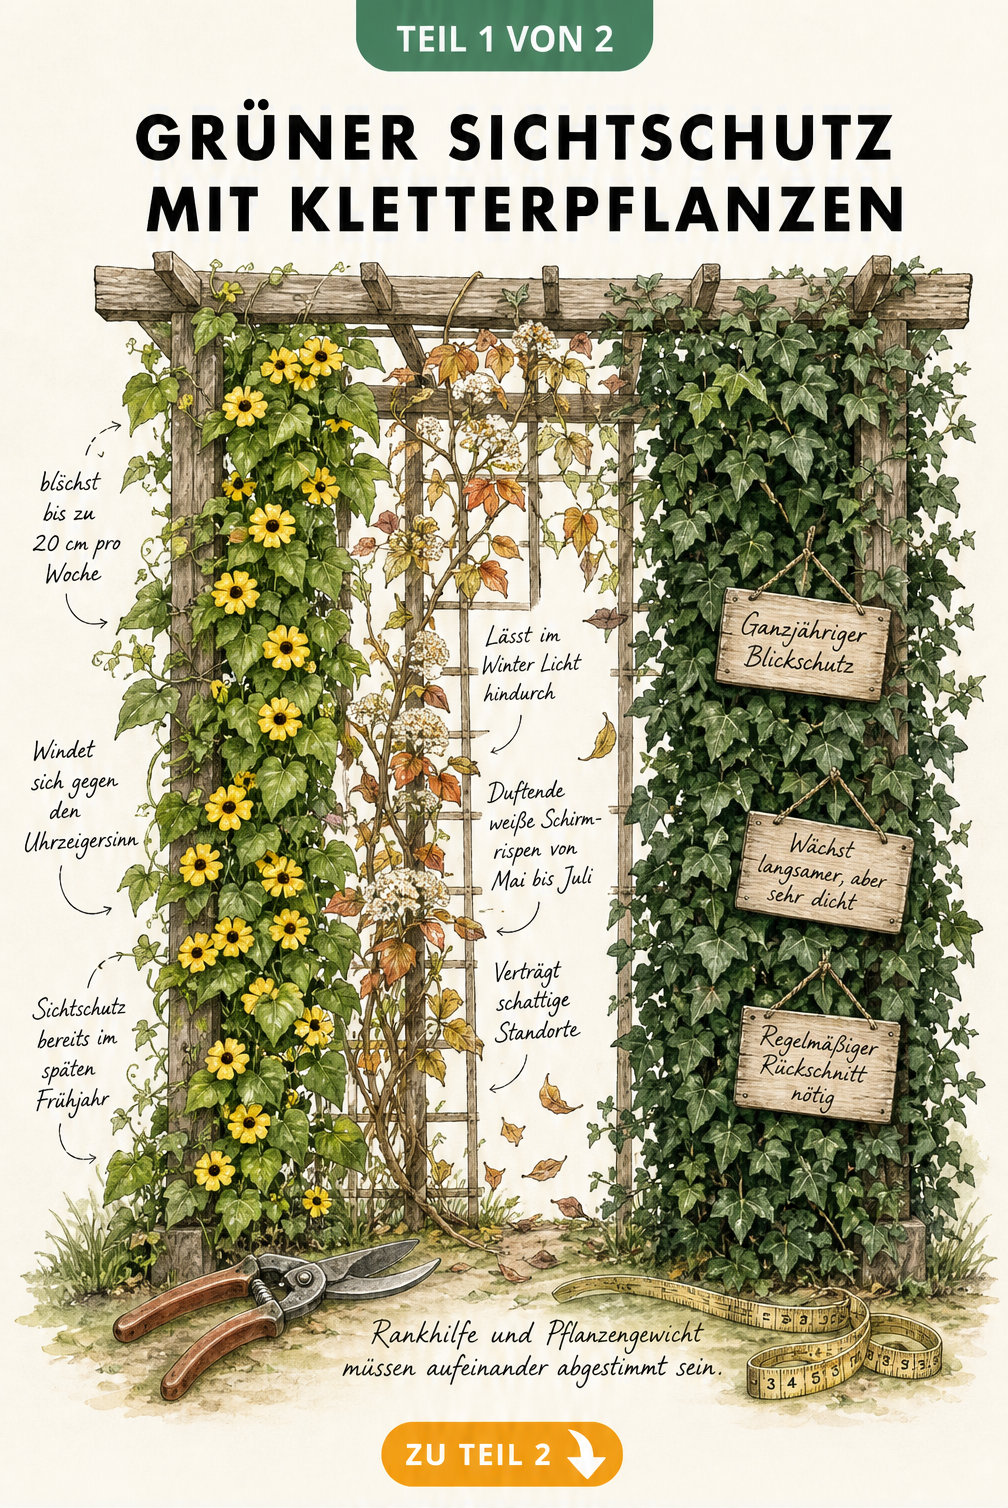 TEIL 1 VON 2
GRÜNER SICHTSCHUTZ
MIT KLETTERPFLANZEN
blschst
bis zu
20 cm pro
Woche
Windet
sich gegen
den
Uhrzeigersinn
Sichtschutz
bereits im
späten
Frühjahr
Lässt im
Winter Licht
hindurch
Duftende
weiße Schirm-
rispen von
Mai bis Juli
Verträgt
schattige
Standorte
Ganzjähriger
Blickschutz
Wächst
langsamer, aber
sehr dicht
Regelmäßiger
Rückschnitt
nötig
Rankhilfe und Pflanzengewicht
müssen aufeinander abgestimmt sein.
ZU TEIL 2